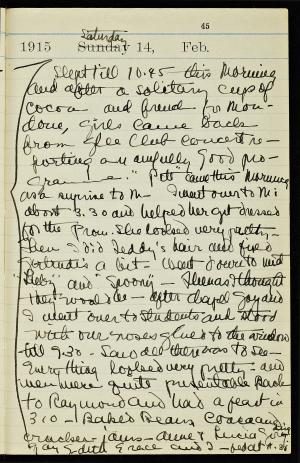 45
Saturday
1915 Sunday 14, Feb.
Slept till 10.45 this morning
and after a solitary cup of
cocoa and
girls came back
from Glee Club concert re-
porting an awfully good pro-
gram "Pete" came this morning
as a surprise to M. I went over to
about 3.30 and helped her get dressed
for the Prom. She looked very pretty.
Then I did Teddy's hair and fixed
Gertrude's a bit. Went down to
and thought
they would be after chapel Gay and
I went over to Students and stood
with our noses glued to the window
till 9.30 - Saw all there was to see
Everything looked very pretty and
men were quite presentable. Back
to Raymond and had a feast in
310 - Baked Beans Cocoa and
crackers jams - Anne Lucia
Gay Edith Grace and I